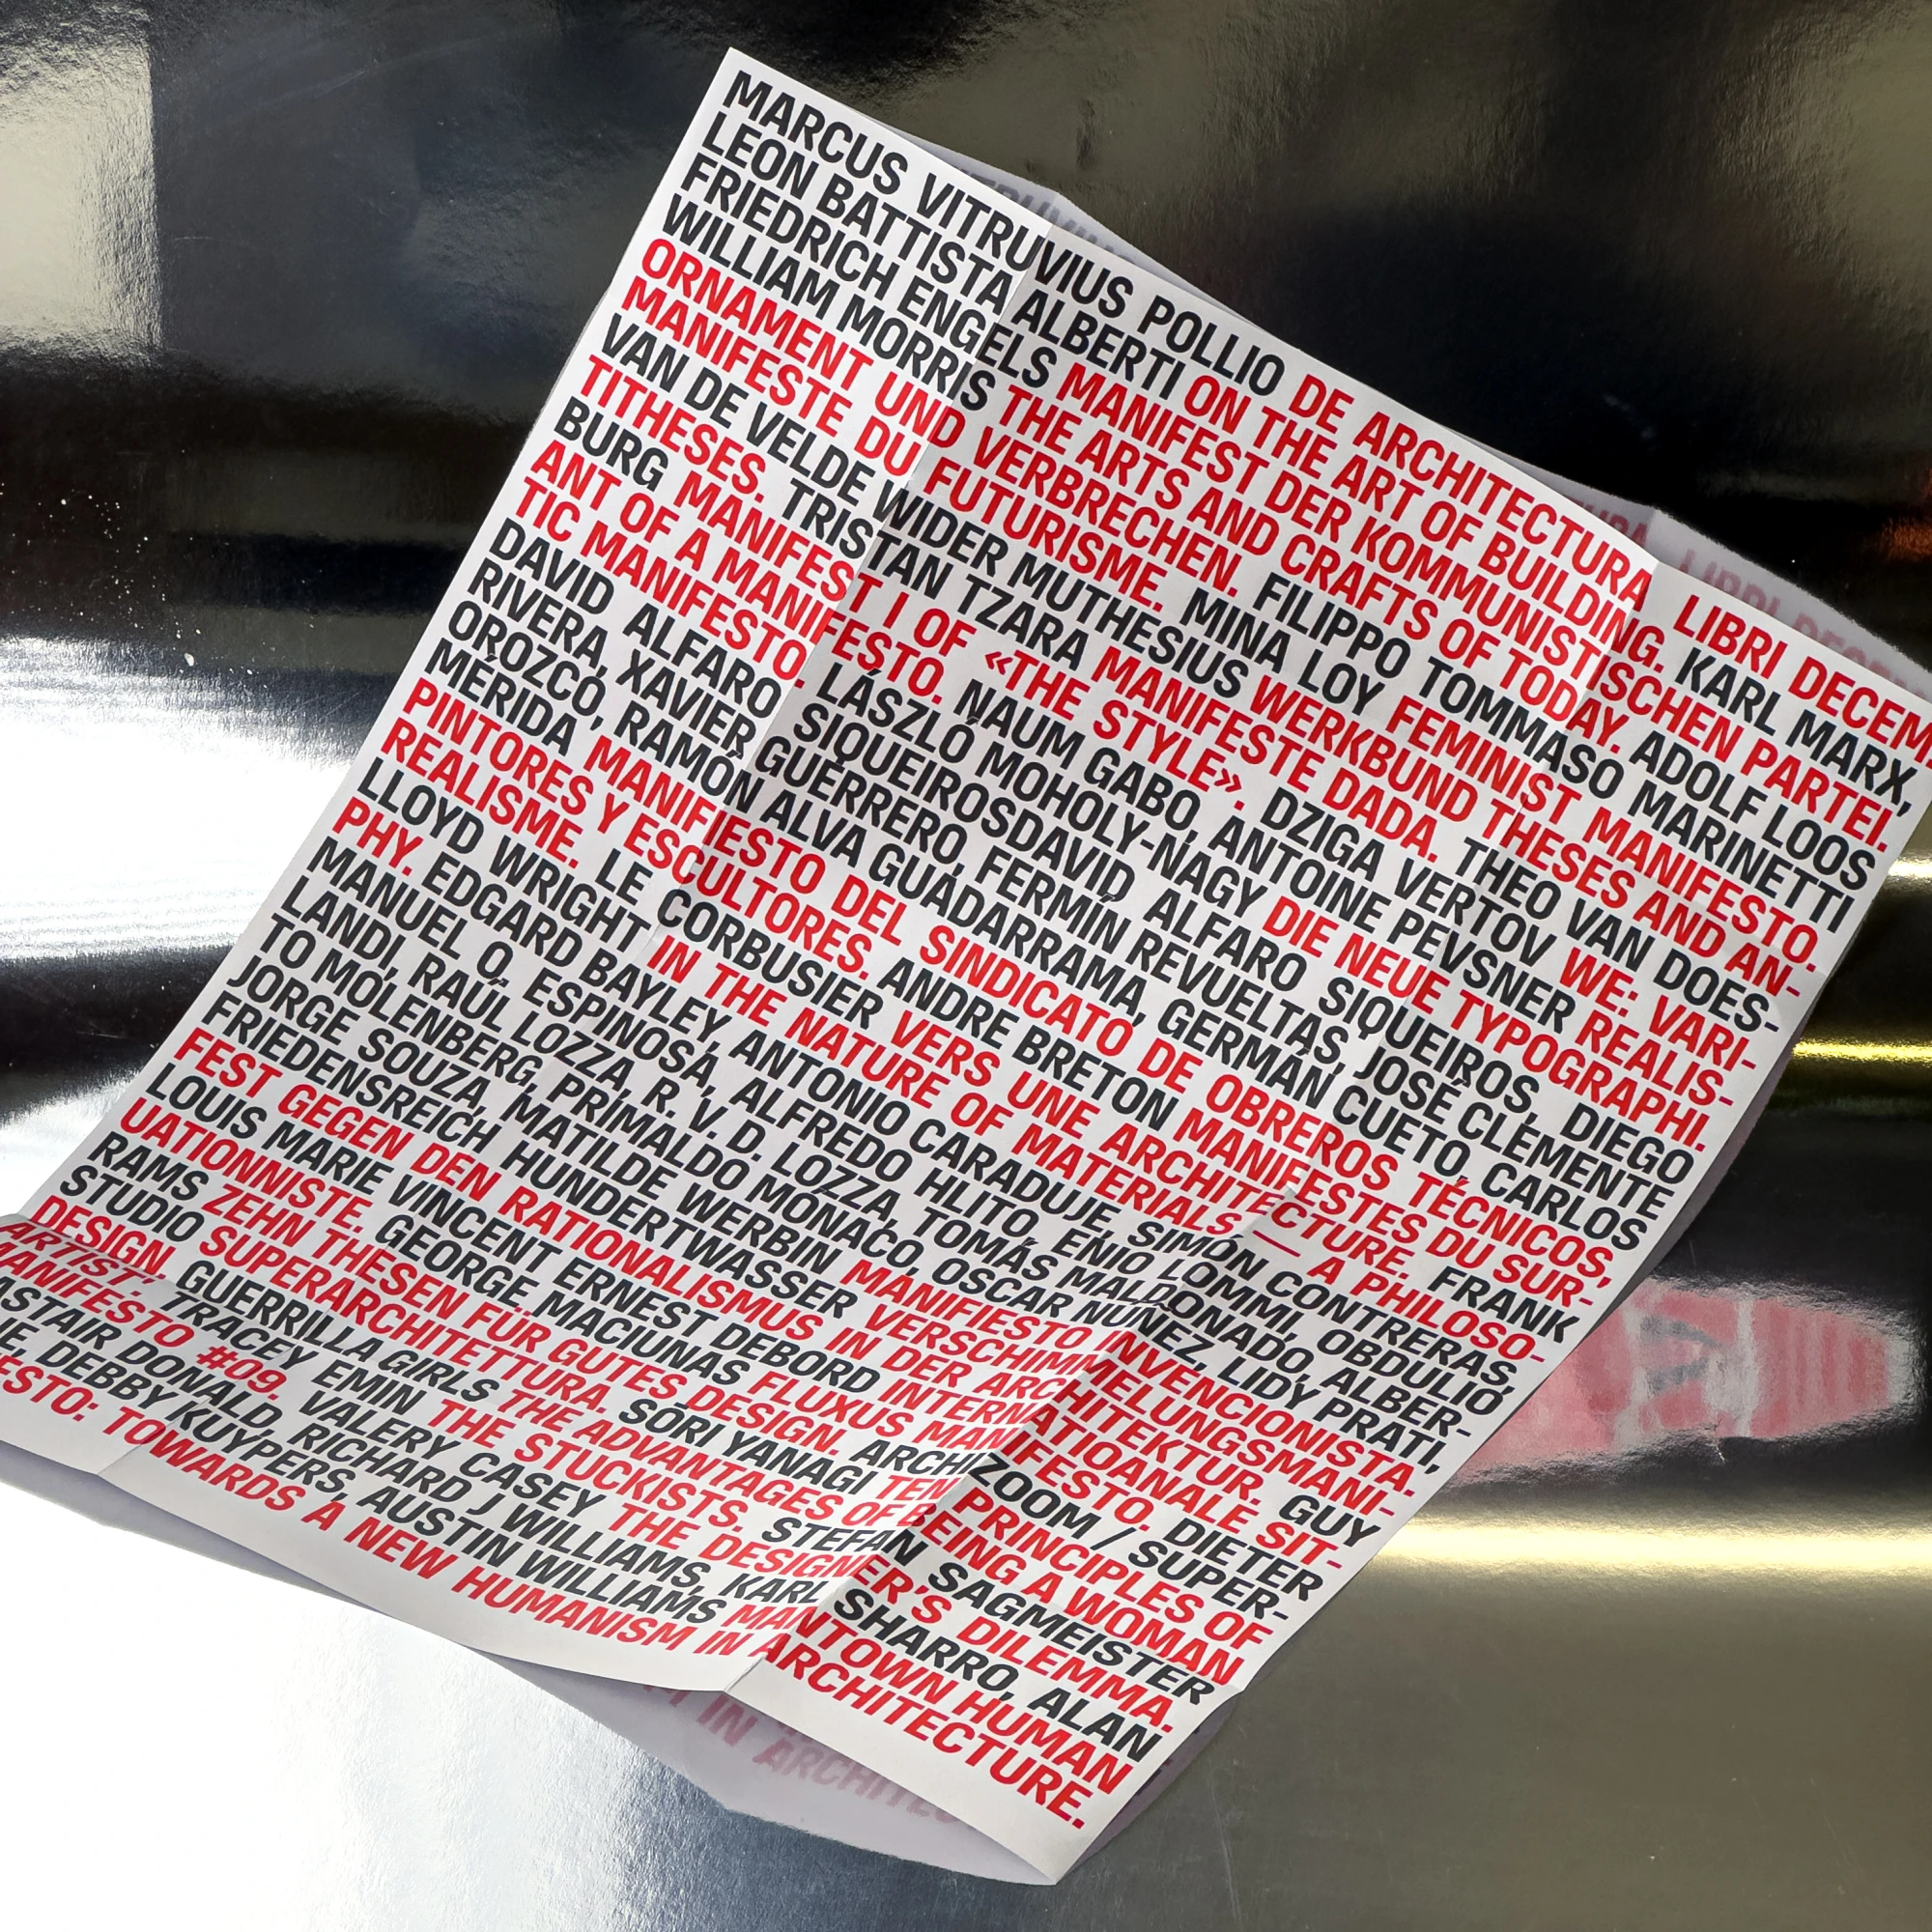 MARCUS VITRUVIUS POLLIO DE ARCHITECTURA LIBRI DECEM
LEON BATTISTA ALBERTI ON THE ART OF BUILDING. KARL MARX,
FRIEDRICH ENGELS MANIFEST DER KOMMUNISTISCHEN PARTEI.
WILLIAM MORRIS THE ARTS AND CRAFTS OF TODAY. ADOLF LOOS
ORNAMENT UND VERBRECHEN. FILIPPO TOMMASO MARINETTI
MANIFESTE DU FUTURISME. MINA LOY FEMINIST MANIFESTO.
VAN DE VELDE WIDER MUTHESIUS WERKBUND THESES AND AN-
TITHESES. TRISTAN TZARA MANIFESTE DADA. THEO VAN DOES-
BURG MANIFEST I OF «THE STYLE». DZIGA VERTOV WE: VARI-
ANT OF A MANIFESTO. NAUM GABO, ANTOINE PEVSNER REALIS-
TIC MANIFESTO. LÁSZLÓ MOHOLY-NAGY DIE NEUE TYPOGRAPHI.
DAVID ALFARO SIQUEIROSDAVID ALFARO SIQUEIROS, DIEGO
RIVERA, XAVIER GUERRERO, FERMÍN REVUELTAS, JOSÉ CLEMENTE
OROZCO, RAMÓN ALVA GUADARRAMA, GERMÁN CUETO, CARLOS
MÉRIDA MANIFIESTO DEL SINDICATO DE OBREROS TÉCNICOS,
PINTORES Y ESCULTORES. ANDRE BRETON MANIFESTES DU SUR-
REALISME. LE CORBUSIER VERS UNE ARCHITECTURE. FRANK
LLOYD WRIGHT IN THE NATURE OF MATERIALS — A PHILOSO-
PHY. EDGARD BAYLEY, ANTONIO CARADUJE, SIMÓN CONTRERAS,
MANUEL O, ESPINOSA, ALFREDO HLITO, ENIO LOMMI, OBDULIO
LANDI, RAÚL LOZZA, R. V. D. LOZZA, TOMÁS MALDONADO, ALBER-
TO MOLENBERG, PRIMALDO MÓNACO, OSCAR NÚÑEZ, LIDY PRATI,
JORGE SOUZA, MATILDE WERBIN MANIFIESTO INVENCIONISTA.
FRIEDENSREICH HUNDERTWASSER VERSCHIMMELUNGSMANI-
FEST GEGEN DEN RATIONALISMUS IN DER ARCHITEKTUR. GUY
LOUIS MARIE VINCENT ERNEST DEBORD INTERNATIONALE SIT-
UATIONNISTE. GEORGE MACIUNAS FLUXUS MANIFESTO. DIETER
RAMS ZEHN THESEN FÜR GUTES DESIGN. ARCHIZOOM / SUPER-
STUDIO SUPERARCHITETTURA. SORI YANAGI TEN PRINCIPLES OF
DESIGN. GUERRILLA GIRLS THE ADVANTAGES OF BEING A WOMAN
ARTIST, TRACEY EMIN THE STUCKISTS. STEFAN SAGMEISTER
MANIFESTO #09. VALERY CASEY THE DESIGNER'S DILEMMA.
DONALD, RICHARD J WILLIAMS, KARL SHARRO, ALAN
DEBBY KUYPERS, AUSTIN WILLIAMS MANTOWN HUMAN
TOWARDS A NEW HUMANISM IN ARCHITECTURE.